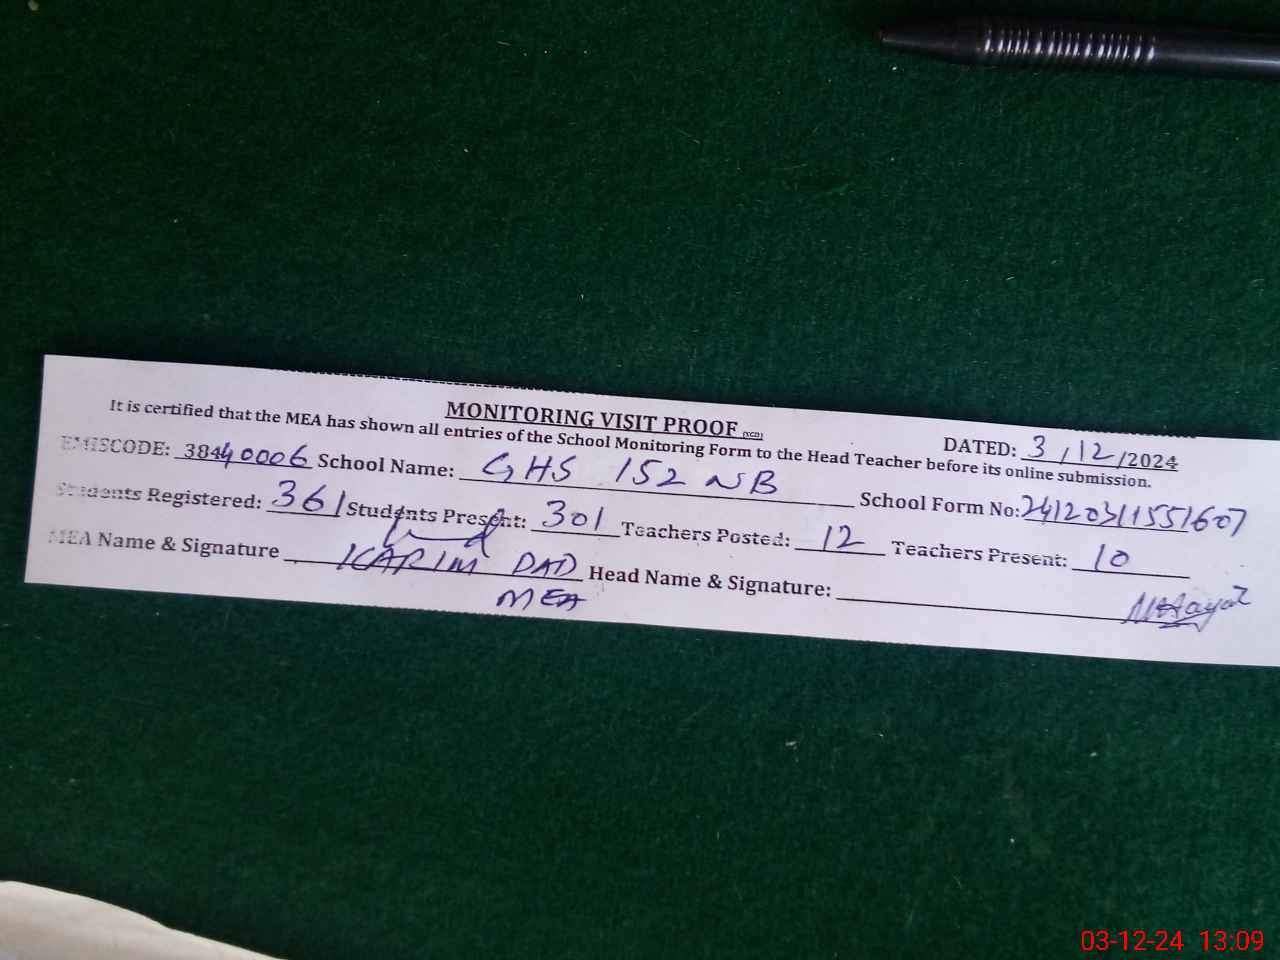 MONITORING VISIT PROOF
DATED: 3/12/2024
It is certified that the MEA has shown all entries of the School Monitoring Form to the Head Teacher before its online submission.
EMISCODE: 38440006 School Name: GHS 152 NB School Form No: 24120311551607
Students Registered: 361 Students Present: 301 Teachers Posted: 12 Teachers Present: 10
MEA Name & Signature KARIM DAD Head Name & Signature:
MEA
03-12-24 13:09